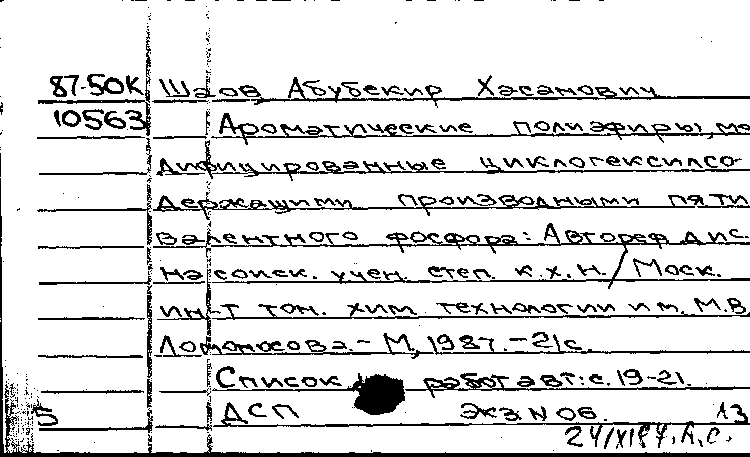 87-50К Шаов, Абубекир Хасанович
10563 Ароматические полиэфиры, мо-
дифицированные циклогексилсо-
держащими производными пяти
валентного фосфора: Автореф. дис.
на соиск. учен. степ. к.х.н. / Моск.
ин-т тон. хим. технологии им. М.В.
Ломоносова. - М., 1987. - 21 с.
Список работ авт: с. 19-21.
ДСП Экз N 06. А3
5
24/XI 87. А.С.